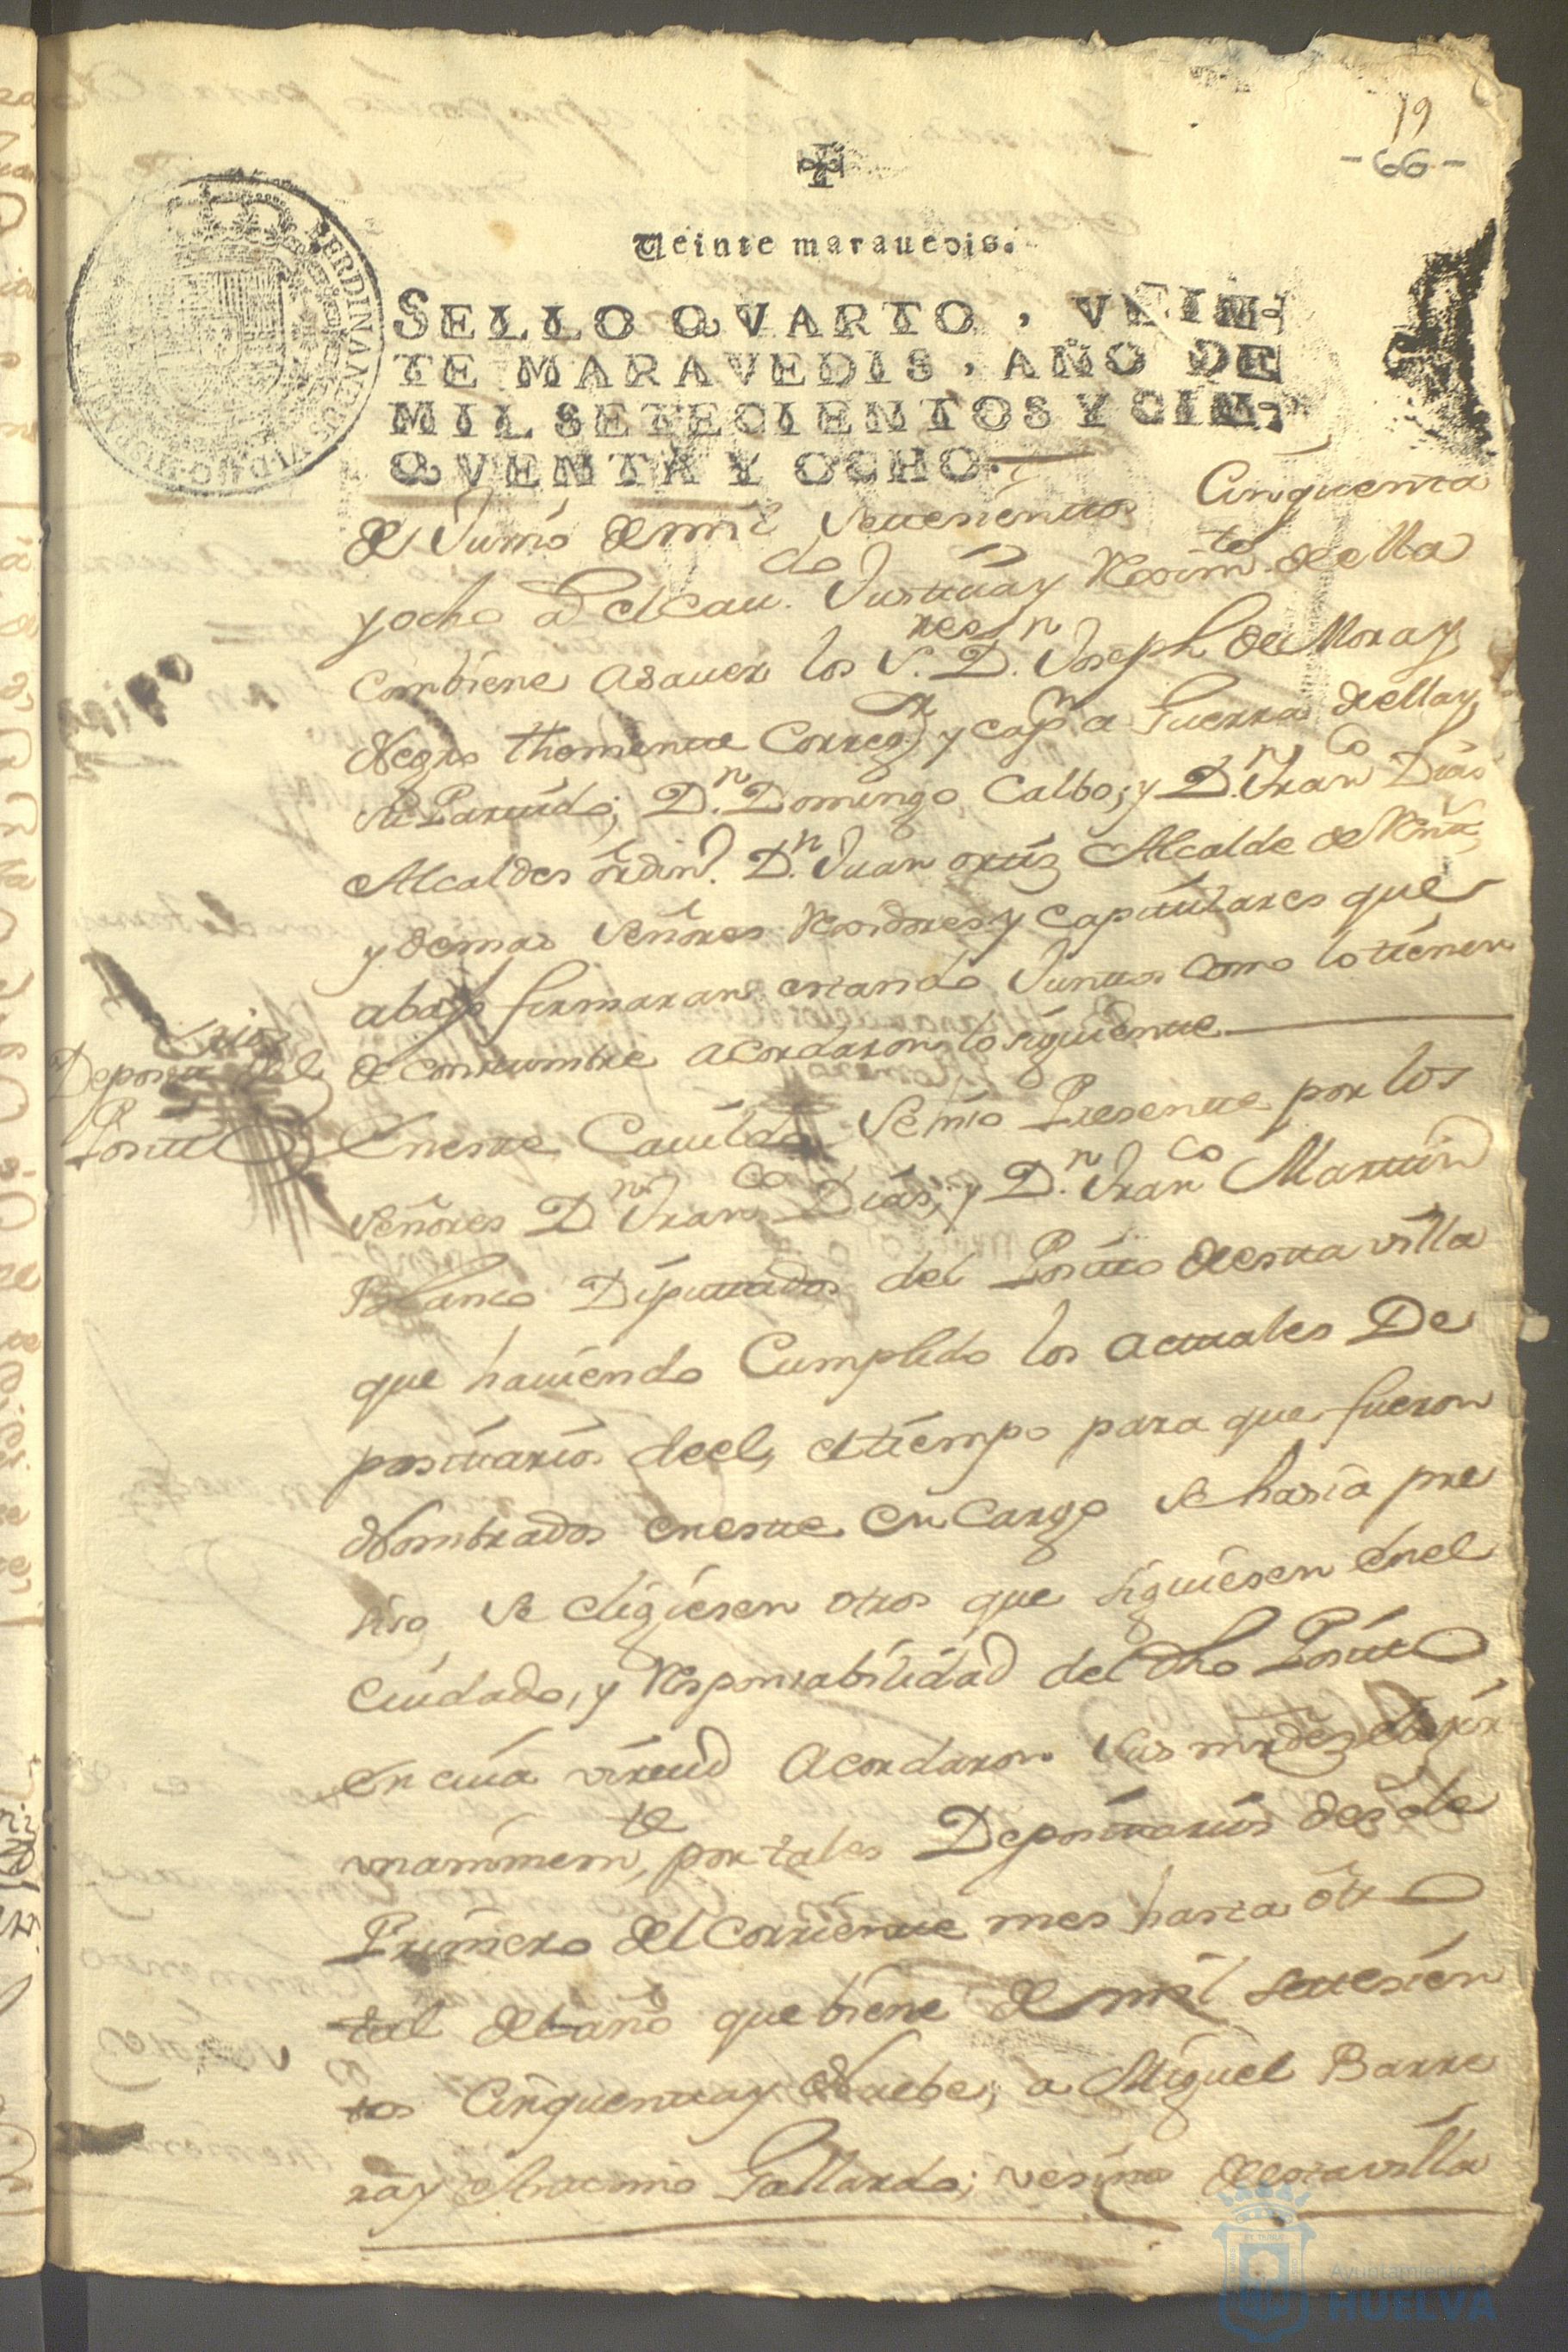 19
-66-
Veinte marauedis.
SELLO QVARTO, VEIN-
TE MARAVEDIS, AÑO DE
MIL SETECIENTOS Y CIN-
QVENTA Y OCHO.
FERDINANDUS VI D G HISP
de Junio de mil setesientos Cinquenta
y ocho a el cau.do Justicia y Rexim.to de ella
combiene asauer los S.res D.n Joseph de Mora y
Negro thomente Correg.r y cap.n a Guerra de ella y
su Partido; D.n Domingo Calbo; y D.n Fran.co Dias
Alcaldes ordin.s D.n Juan ortiz Alcalde de
y demas señores Rexidores y Capitulares que
abajo firmaran estando Juntos como lo tienen
de constumbre acordaron lo siguiente
Depositarios del
Posito
En este Cauildo se hiso Presente por los
señores D.n Fran.co Dias; y D.n Fran.co Martin
Blanco Diputados del Posito de esta villa
que hauiendo Cumplido los actuales De
positarios de el, el tiempo para que fueron
Nombrados en este en Cargo se hasia pre
siso se eligiesen otros que siguiesen en el
Cuidado, y Responsabilidad del dho Posito
en cuia virtud acordaron sus mrdez elejir
unanimem.te por tales Depositarios desde
Primero del Corriente mes hasta otro
tal del año que biene de mil setesien
tos Cinquenta y Nuebe; a Miguel Barre
ra y Gallardo; vesinos de esta villa
Ayuntamiento de
HUELVA